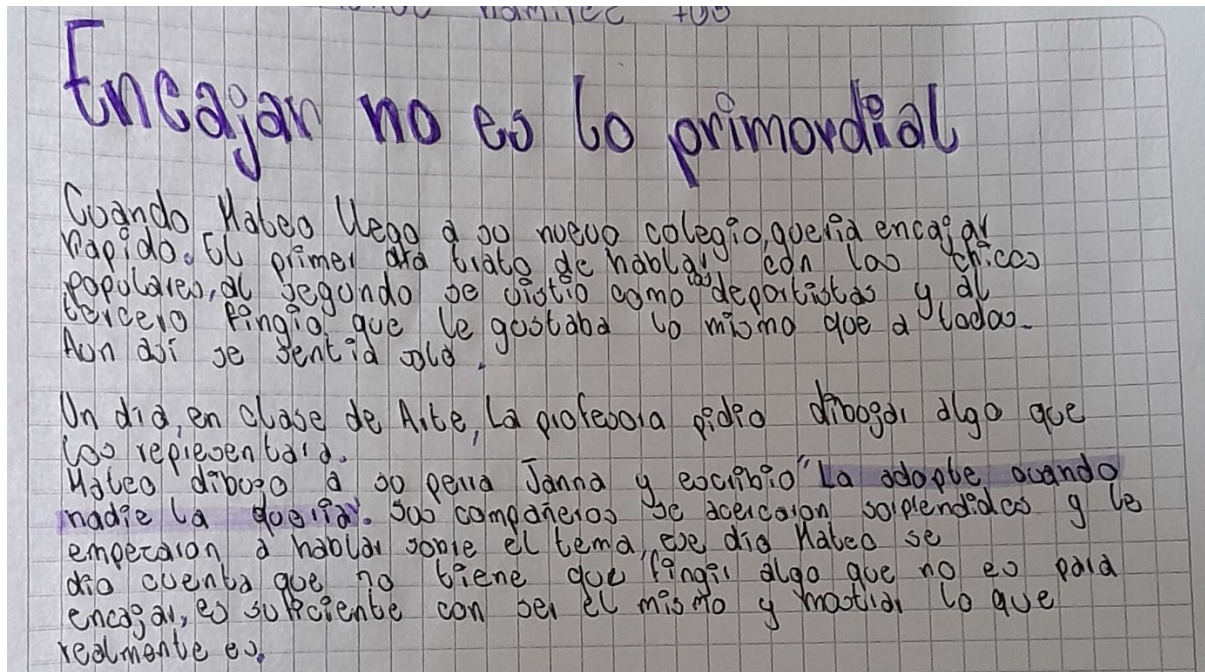 Encajar no es lo primordial
Cuando Mateo llego a su nuevo colegio, queria encajar
rapido. El primer dia trato de hablar con los chicos
populares, al segundo se vistio como los deportistas y al
tercero fingio que le gustaba lo mismo que a todos.
Aun así se sentia solo.
Un dia, en clase de Arte, La profesora pidio dibujar algo que
los representara.
Mateo dibujo a su perra Janna y escribio "La adopte cuando
nadie la queria". Sus compañeros se acercaron sorprendidos y le
empezaron a hablar sobre el tema, ese dia Mateo se
dio cuenta que no tiene que fingir algo que no es para
encajar, es suficiente con ser el mismo y mostrar lo que
realmente es.